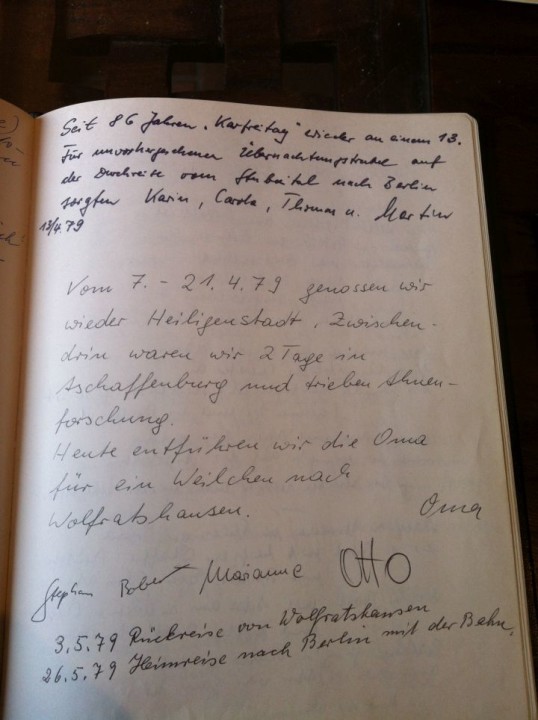 Seit 86 Jahren „Karfreitag" wieder an einem 13.
Für unvorhergesehenen Übernachtungstrubel auf
der Durchreise vom Stubaital nach Berlin
sorgten Karin, Carola, Thomas u. Martin
13/4.79
Vom 7. - 21. 4. 79 genossen wir
wieder Heiligenstadt. Zwischen-
drin waren wir 2 Tage in
Aschaffenburg und trieben Ahnen-
forschung.
Heute entführen wir die Oma
für ein Weilchen nach
Wolfratshausen.
Oma
Stephan Robert Marianne Otto
3.5.79 Rückreise von Wolfratshausen
26.5.79 Heimreise nach Berlin mit der Bahn.